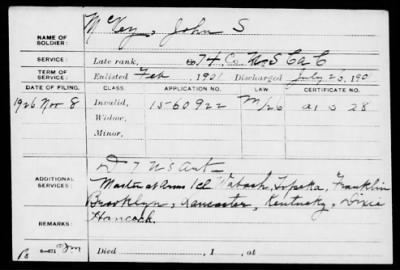 NAME OF SOLDIER: McVey, John S
SERVICE: Late rank, 74 Co. U.S.C.A.C
TERM OF SERVICE: Enlisted Feb , 1901 Discharged July 26, 190
DATE OF FILING. CLASS. APPLICATION NO. CERTIFICATE NO.
1926 Nov 8 Invalid, 1560922 28
Widow,
Minor,
ADDITIONAL SERVICES:
Master at Arms 1cl Wabash, Topeka, Franklin
Brooklyn, Lancaster, Kentucky, Dixie
REMARKS: Hancock.
Died , 1 , at